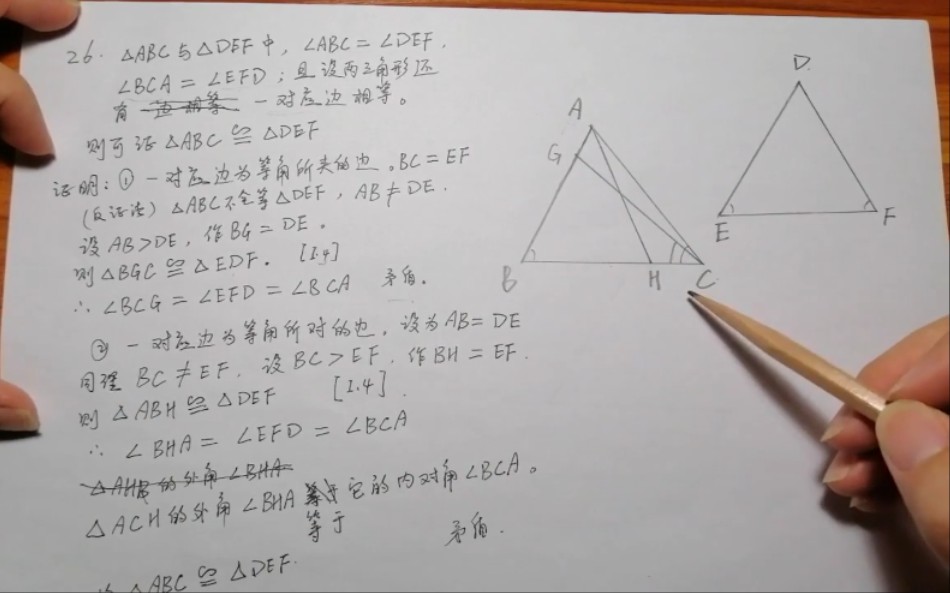 26. △ABC与△DEF中，∠ABC = ∠DEF，
∠BCA = ∠EFD；且设两三角形还
有 一对应边相等。
则可证 △ABC ≌ △DEF
证明：① 一对应边为等角所夹的边。BC = EF
(反证法) △ABC不全等△DEF，AB ≠ DE.
设 AB>DE，作BG = DE.
则△BGC ≌ △EDF. [I.4]
∴ ∠BCG = ∠EFD = ∠BCA 矛盾.
② 一对应边为等角所对的边，设为AB = DE
同理 BC ≠ EF，设 BC > EF，作BH = EF.
则 △ABH ≌ △DEF [I.4].
∴ ∠BHA = ∠EFD = ∠BCA
△AHB的外角∠BHA
△ACH的外角∠BHA 它的内对角∠BCA。
等于
矛盾.
△ABC ≌ △DEF.
A
G
B
H
C
D
E
F